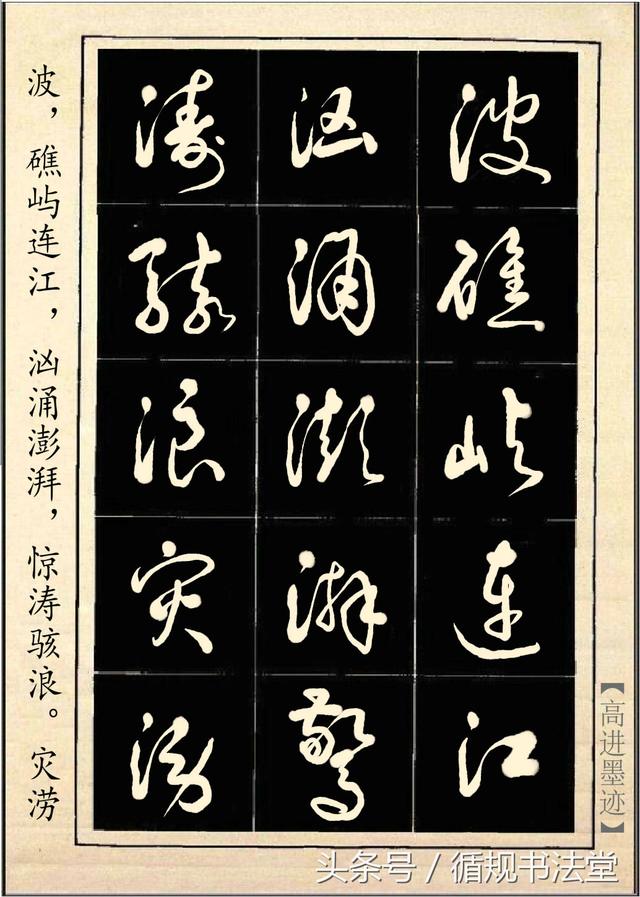 波礁屿连江
汹涌澎湃惊
涛骇浪灾涝
波，礁屿连江，汹涌澎湃，惊涛骇浪。灾涝
【高进墨迹】
头条号／循规书法堂